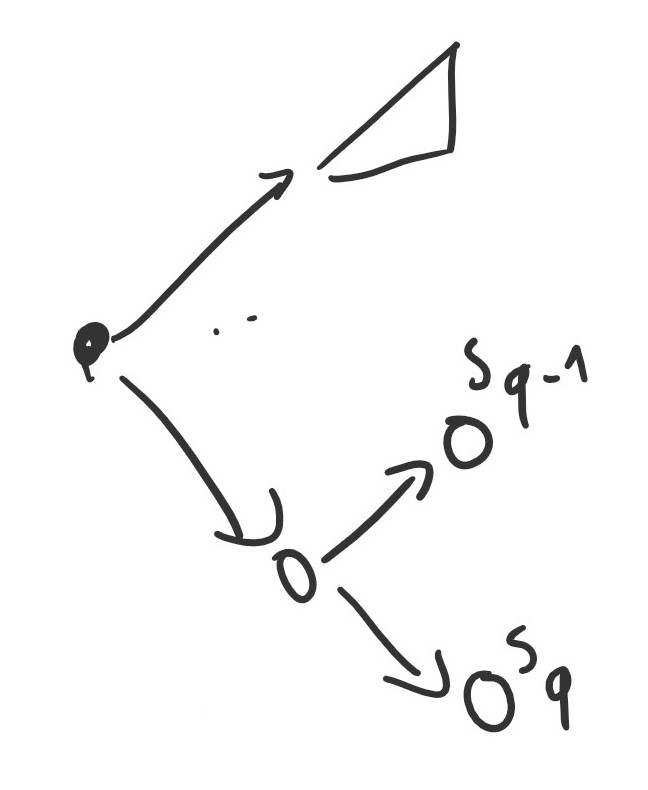 Sq-1
Sq